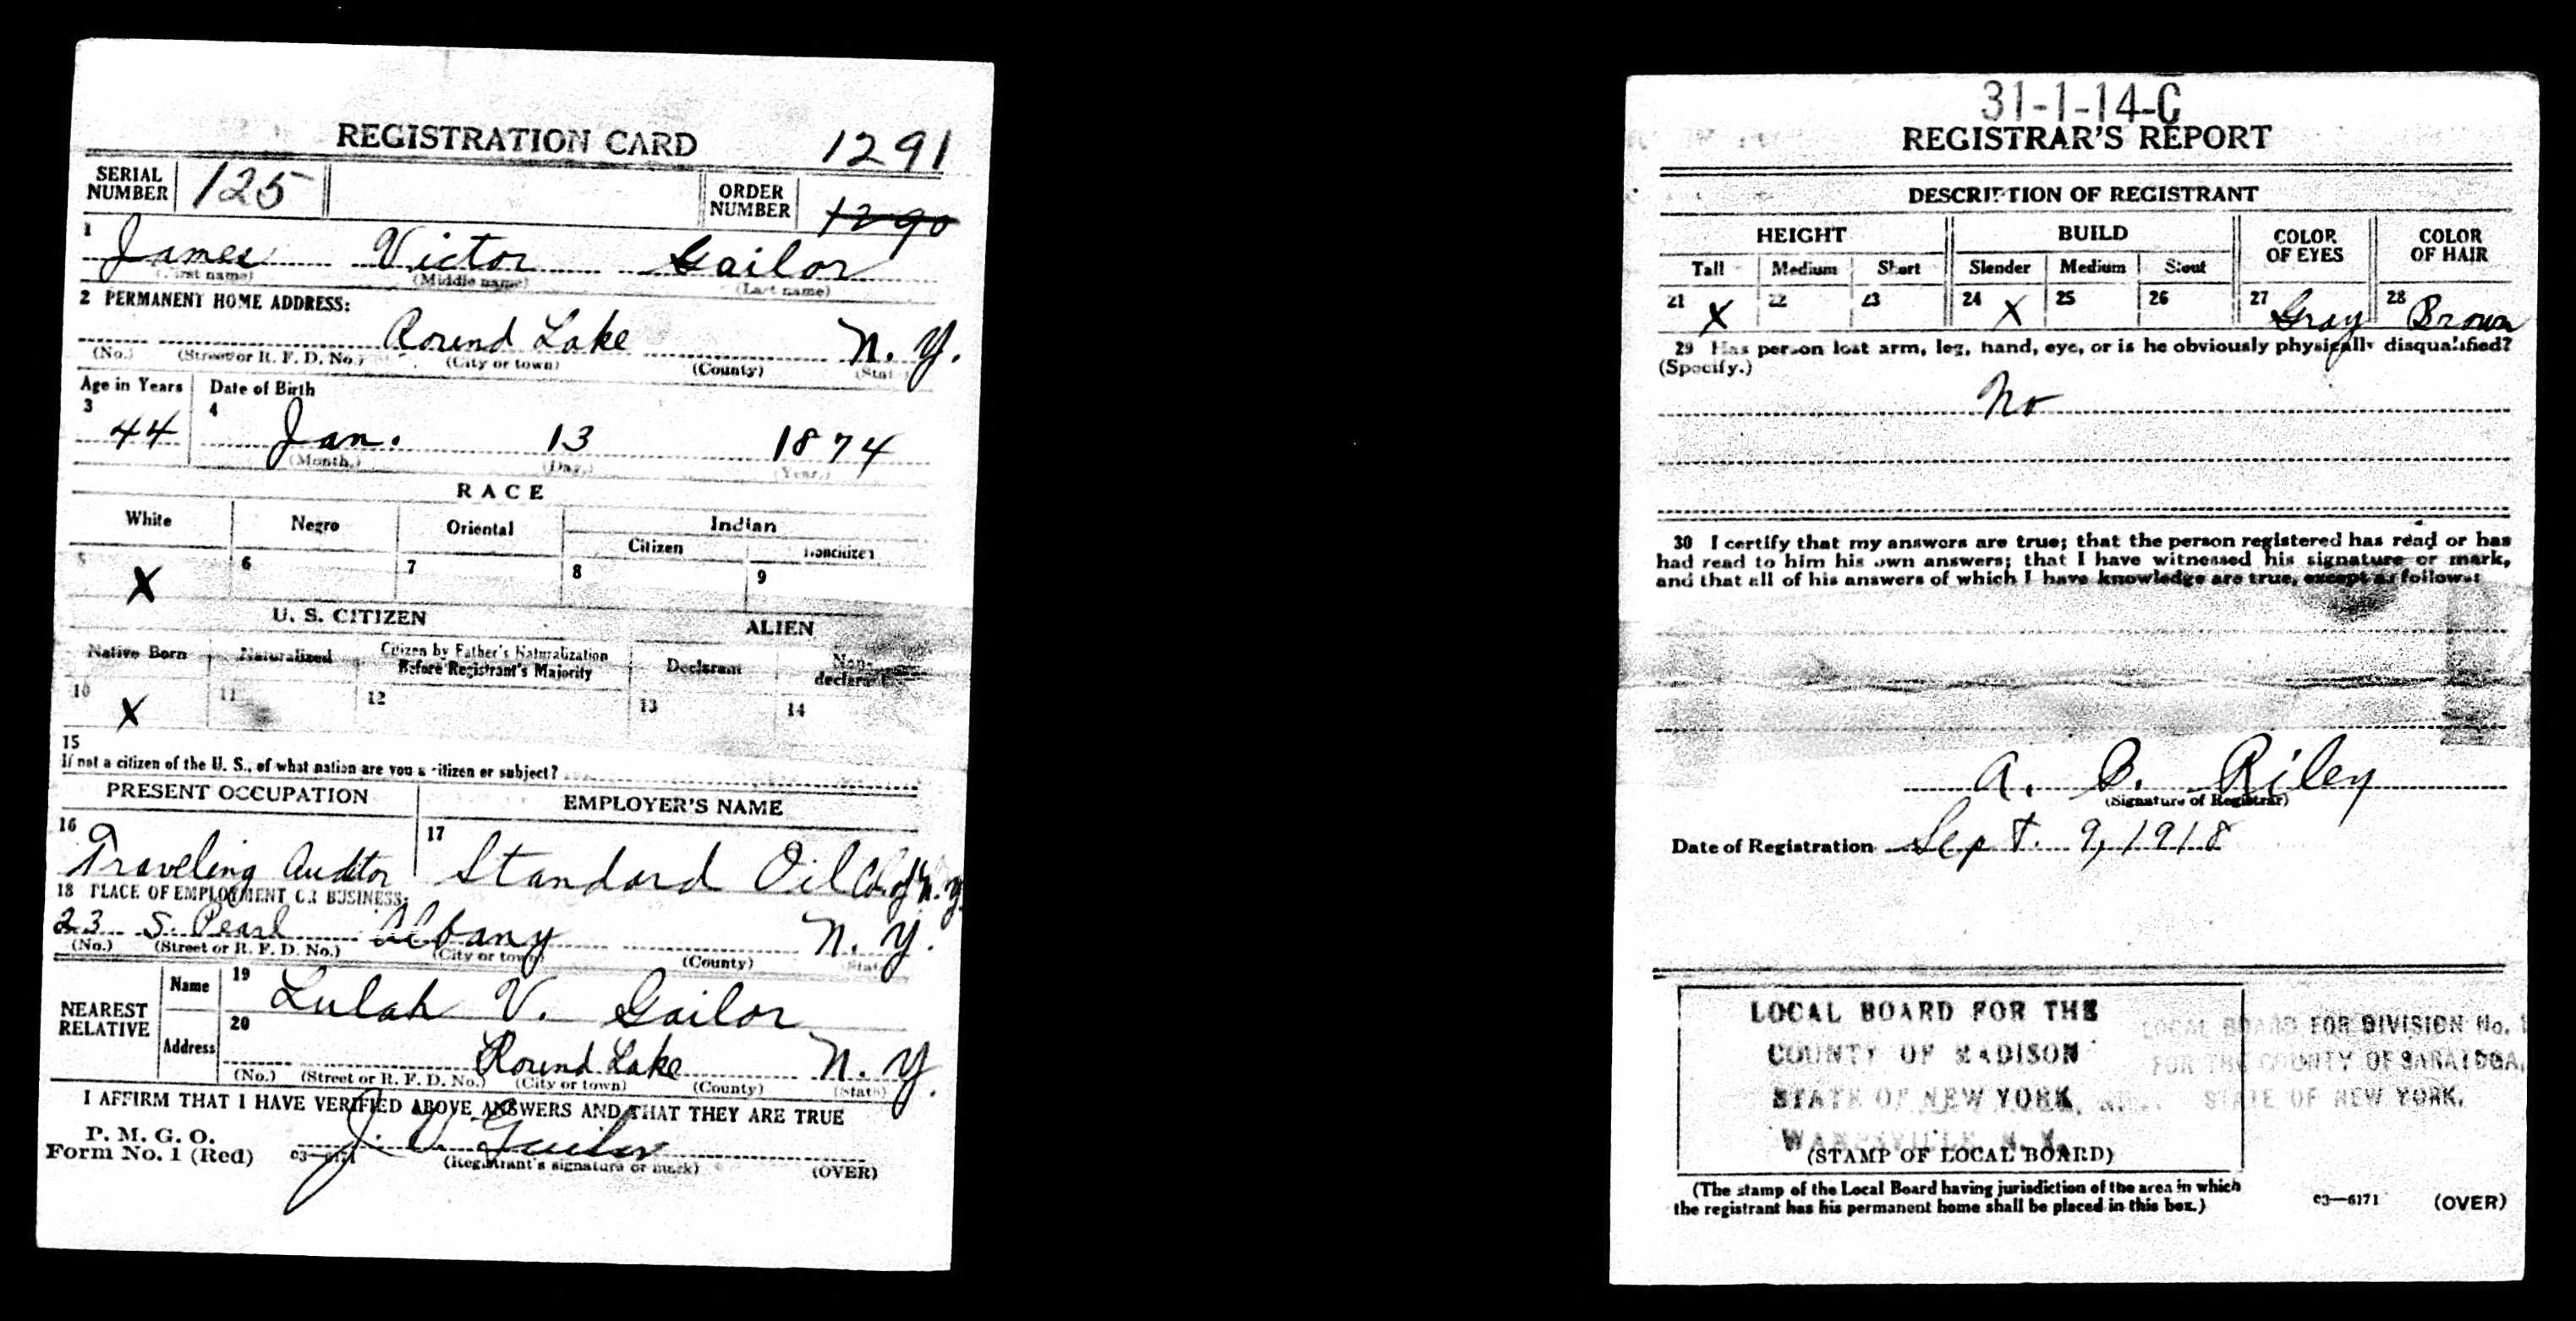 REGISTRATION CARD 1291
SERIAL NUMBER 125 ORDER NUMBER 1290
1 James Victor Gailor
(First name) (Middle name) (Last name)
2 PERMANENT HOME ADDRESS:
Round Lake N. Y.
(No.) (Street or R. F. D. No.) (City or town) (County) (State)
Age in Years Date of Birth
3 4
44 Jan. 13 1874
(Month.) (Day.) (Year.)
RACE
White Negro Oriental Indian
Citizen Noncitizen
5 X 6 7 8 9
U. S. CITIZEN ALIEN
Native Born Naturalized Citizen by Father's Naturalization Before Registrant's Majority Declarant Non-declarant
10 X 11 12 13 14
15
If not a citizen of the U. S., of what nation are you a citizen or subject?
PRESENT OCCUPATION EMPLOYER'S NAME
16 Traveling Auditor 17 Standard Oil Co. of N. Y.
18 PLACE OF EMPLOYMENT OR BUSINESS:
23 S. Pearl Albany N. Y.
(No.) (Street or R. F. D. No.) (City or town) (County) (State)
NEAREST RELATIVE
Name 19 Lulah V. Gailor
Address 20 Round Lake N. Y.
(No.) (Street or R. F. D. No.) (City or town) (County) (State)
I AFFIRM THAT I HAVE VERIFIED ABOVE ANSWERS AND THAT THEY ARE TRUE
P. M. G. O.
Form No. 1 (Red) 03—6171 J. V. Gailor
(Registrant's signature or mark) (OVER)
31-1-14-C
REGISTRAR'S REPORT
DESCRIPTION OF REGISTRANT
HEIGHT BUILD COLOR OF EYES COLOR OF HAIR
Tall Medium Short Slender Medium Stout
21 X 22 23 24 X 25 26 27 Gray 28 Brown
29 Has person lost arm, leg, hand, eye, or is he obviously physically disqualified?
(Specify.)
No
30 I certify that my answers are true; that the person registered has read or has
had read to him his own answers; that I have witnessed his signature or mark,
and that all of his answers of which I have knowledge are true, except as follows:
A. B. Riley
(Signature of Registrar)
Date of Registration Sept. 9, 1918
LOCAL BOARD FOR THE
COUNTY OF MADISON
STATE OF NEW YORK,
WAMPSVILLE N. Y.
(STAMP OF LOCAL BOARD)
LOCAL BOARD FOR DIVISION No. 1
FOR THE COUNTY OF SARATOGA,
STATE OF NEW YORK.
(The stamp of the Local Board having jurisdiction of the area in which
the registrant has his permanent home shall be placed in this box.)
03—6171 (OVER)